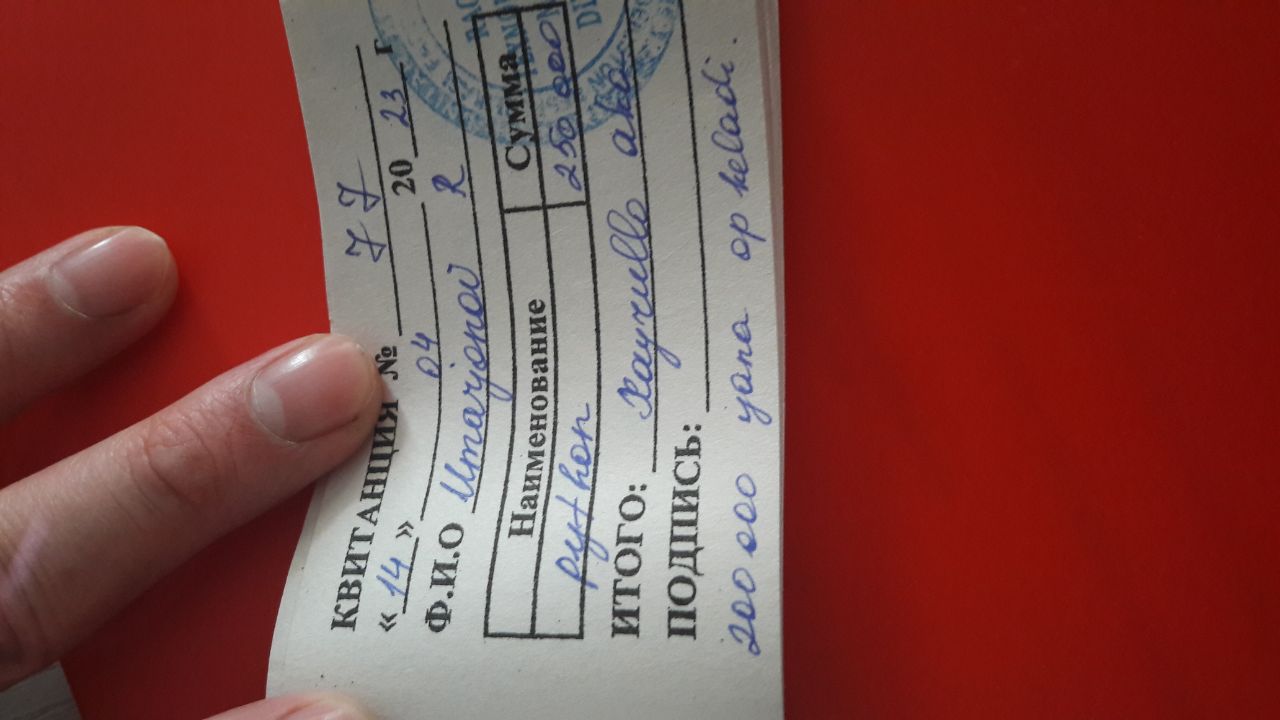 КВИТАНЦИЯ № 77
« 14 » 04 20 23 г
Ф.И.О Umarjonov R
Наименование Сумма
python 250 000
ИТОГО: Xayrullo aka
ПОДПИСЬ:
200 000 yana op keladi.